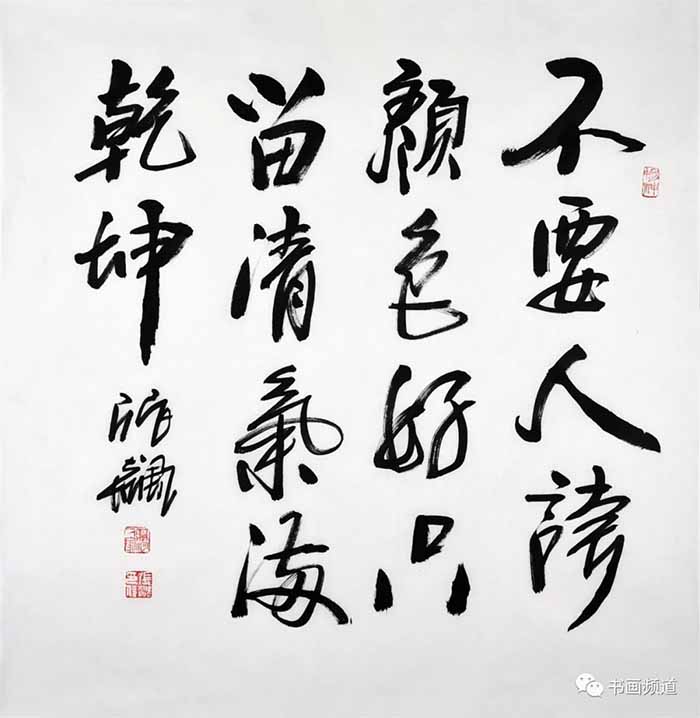 不要人誇
顏色好只
留清氣滿
乾坤
书画频道